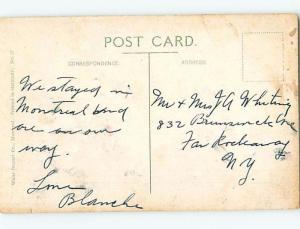 POST CARD.
CORRESPONDENCE
ADDRESS
We stayed in
Montreal and
are on our
way.
Love
Blanche
Mr & Mrs J A Whiting
832 Brunswick Ave
Far Rockaway
N.Y.